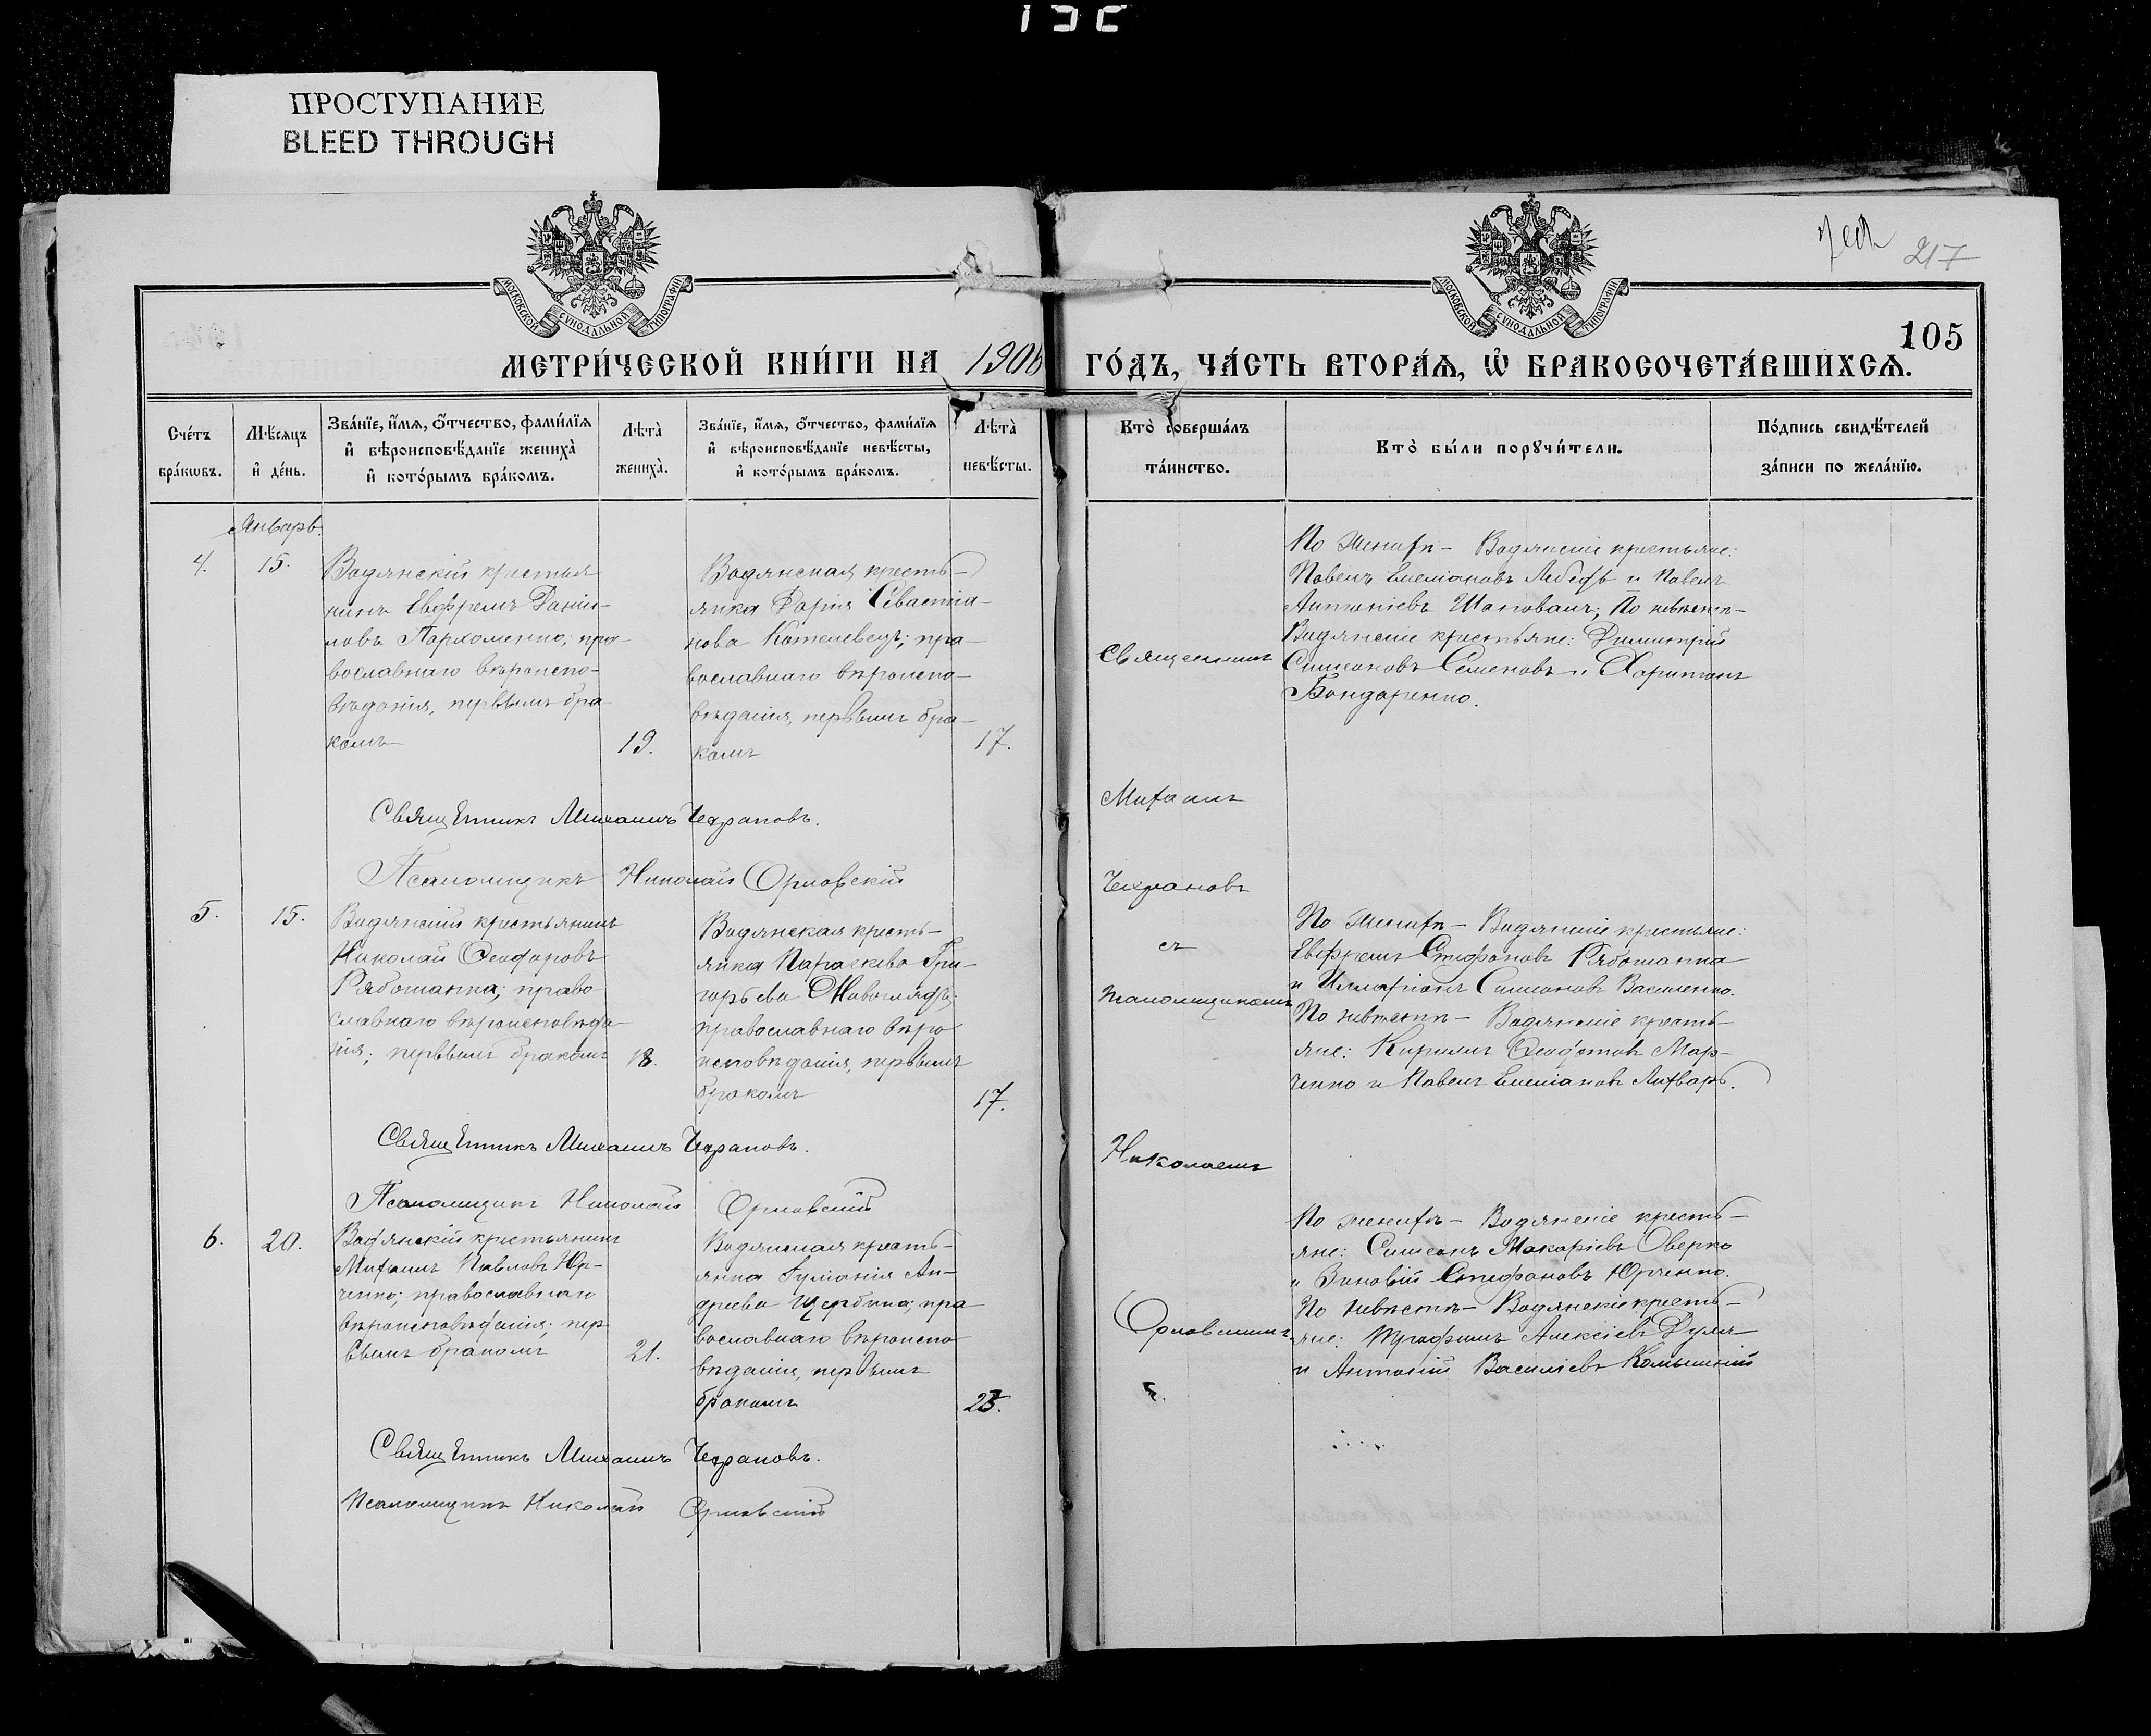 ПРОСТУПАНИЕ
BLEED THROUGH
217
105
МОСКОВСКОЙ СѴНОДАЛЬНОЙ ТИПОГРАФІИ
МОСКОВСКОЙ СѴНОДАЛЬНОЙ ТИПОГРАФІИ
МЕТРИ́ЧЕСКОЙ КНИ́ГИ НА 1906 ГО́ДЪ, ЧА́СТЬ ВТОРА́Ѧ, Ѽ БРАКОСОЧЕТА́ВШИХСѦ.
Сче́тъ бра́кѡвъ.
Мѣ́сяцъ и҆ де́нь.
Зва́нїе, и҆́мѧ, ѻ҆́тчество, фами́лїѧ и҆ вѣроисповѣ́данїе жениха̀ и҆ кото́рымъ бра́комъ.
Лѣта̀ жениха̀.
Зва́нїе, и҆́мѧ, ѻ҆́тчество, фами́лїѧ и҆ вѣроисповѣ́данїе невѣ́сты, и҆ кото́рымъ бра́комъ.
Лѣта̀ невѣ́сты.
Кто̀ соверша́лъ та́инство.
Кто̀ бы́ли порꙋчи́тели.
По́дпись свидѣ́телей за́писи по жела́нїю.
Январь.
4.
15.
Водянскій крестья
нинъ Евфремъ Даніи-
ловъ Пархоменко; пра-
вославнаго вѣроиспо-
вѣданія, первымъ бра
комъ
19.
Водянская кресть-
янка Дарія Севастіа-
нова Котелевецъ; пра-
вославнаго вѣроиспо-
вѣданія, первымъ бра-
комъ
17.
По женихѣ - Водянскіе крестьяне:
Павелъ Емеліановъ Лебедь и Павелъ
Антоніевъ Шаповалъ; По невѣстѣ-
Водянскіе крестьяне: Димитрій
Симеоновъ Семеновъ и Харитонъ
Бондаренко.
Священникъ
Михаилъ
Чехрановъ
съ
псаломщикомъ
Николаемъ
Орловскимъ.
Священникъ Михаилъ Чехрановъ.
Псаломщикъ Николай Орловскій
5.
15.
Водянскій крестьянинъ
Николай Ѳеодоровъ
Рябошапка; право
славнаго вѣроисповѣда
нія; первымъ бракомъ
18.
Водянская кресть-
янка Параскева Гри-
горьева
православнаго вѣро
исповѣданія, первымъ
бракомъ
17.
По женихѣ - Водянскіе крестьяне:
Евфремъ Стефановъ Рябошапка
и Илларіонъ Симеоновъ Василенко.
По невѣстѣ - Водянскіе кресть-
яне: Кириллъ Ѳеодотовъ Мар-
ченко и Павелъ Емеліановъ Лихварь.
Священникъ Михаилъ Чехрановъ.
Псаломщикъ Николай Орловскій
6.
20.
Водянскій крестьянинъ
Михаилъ Павловъ Юр-
ченко; православнаго
вѣроисповѣданія; пер
вымъ бракомъ
21.
Водянская кресть-
янка Іуліанія Ан-
дреева Щербина; пра
вославнаго вѣроиспо
вѣданія, первымъ
бракомъ
По женихѣ - Водянскіе кресть-
яне: Симеонъ Макаріевъ Оверко
и Зиновій Стефановъ Юрченко.
По невѣстѣ - Водянскіе кресть-
яне: Трофимъ Алексіевъ
и Антоній Василіевъ
Священникъ Михаилъ Чехрановъ.
Псаломщикъ Николай Орловскій